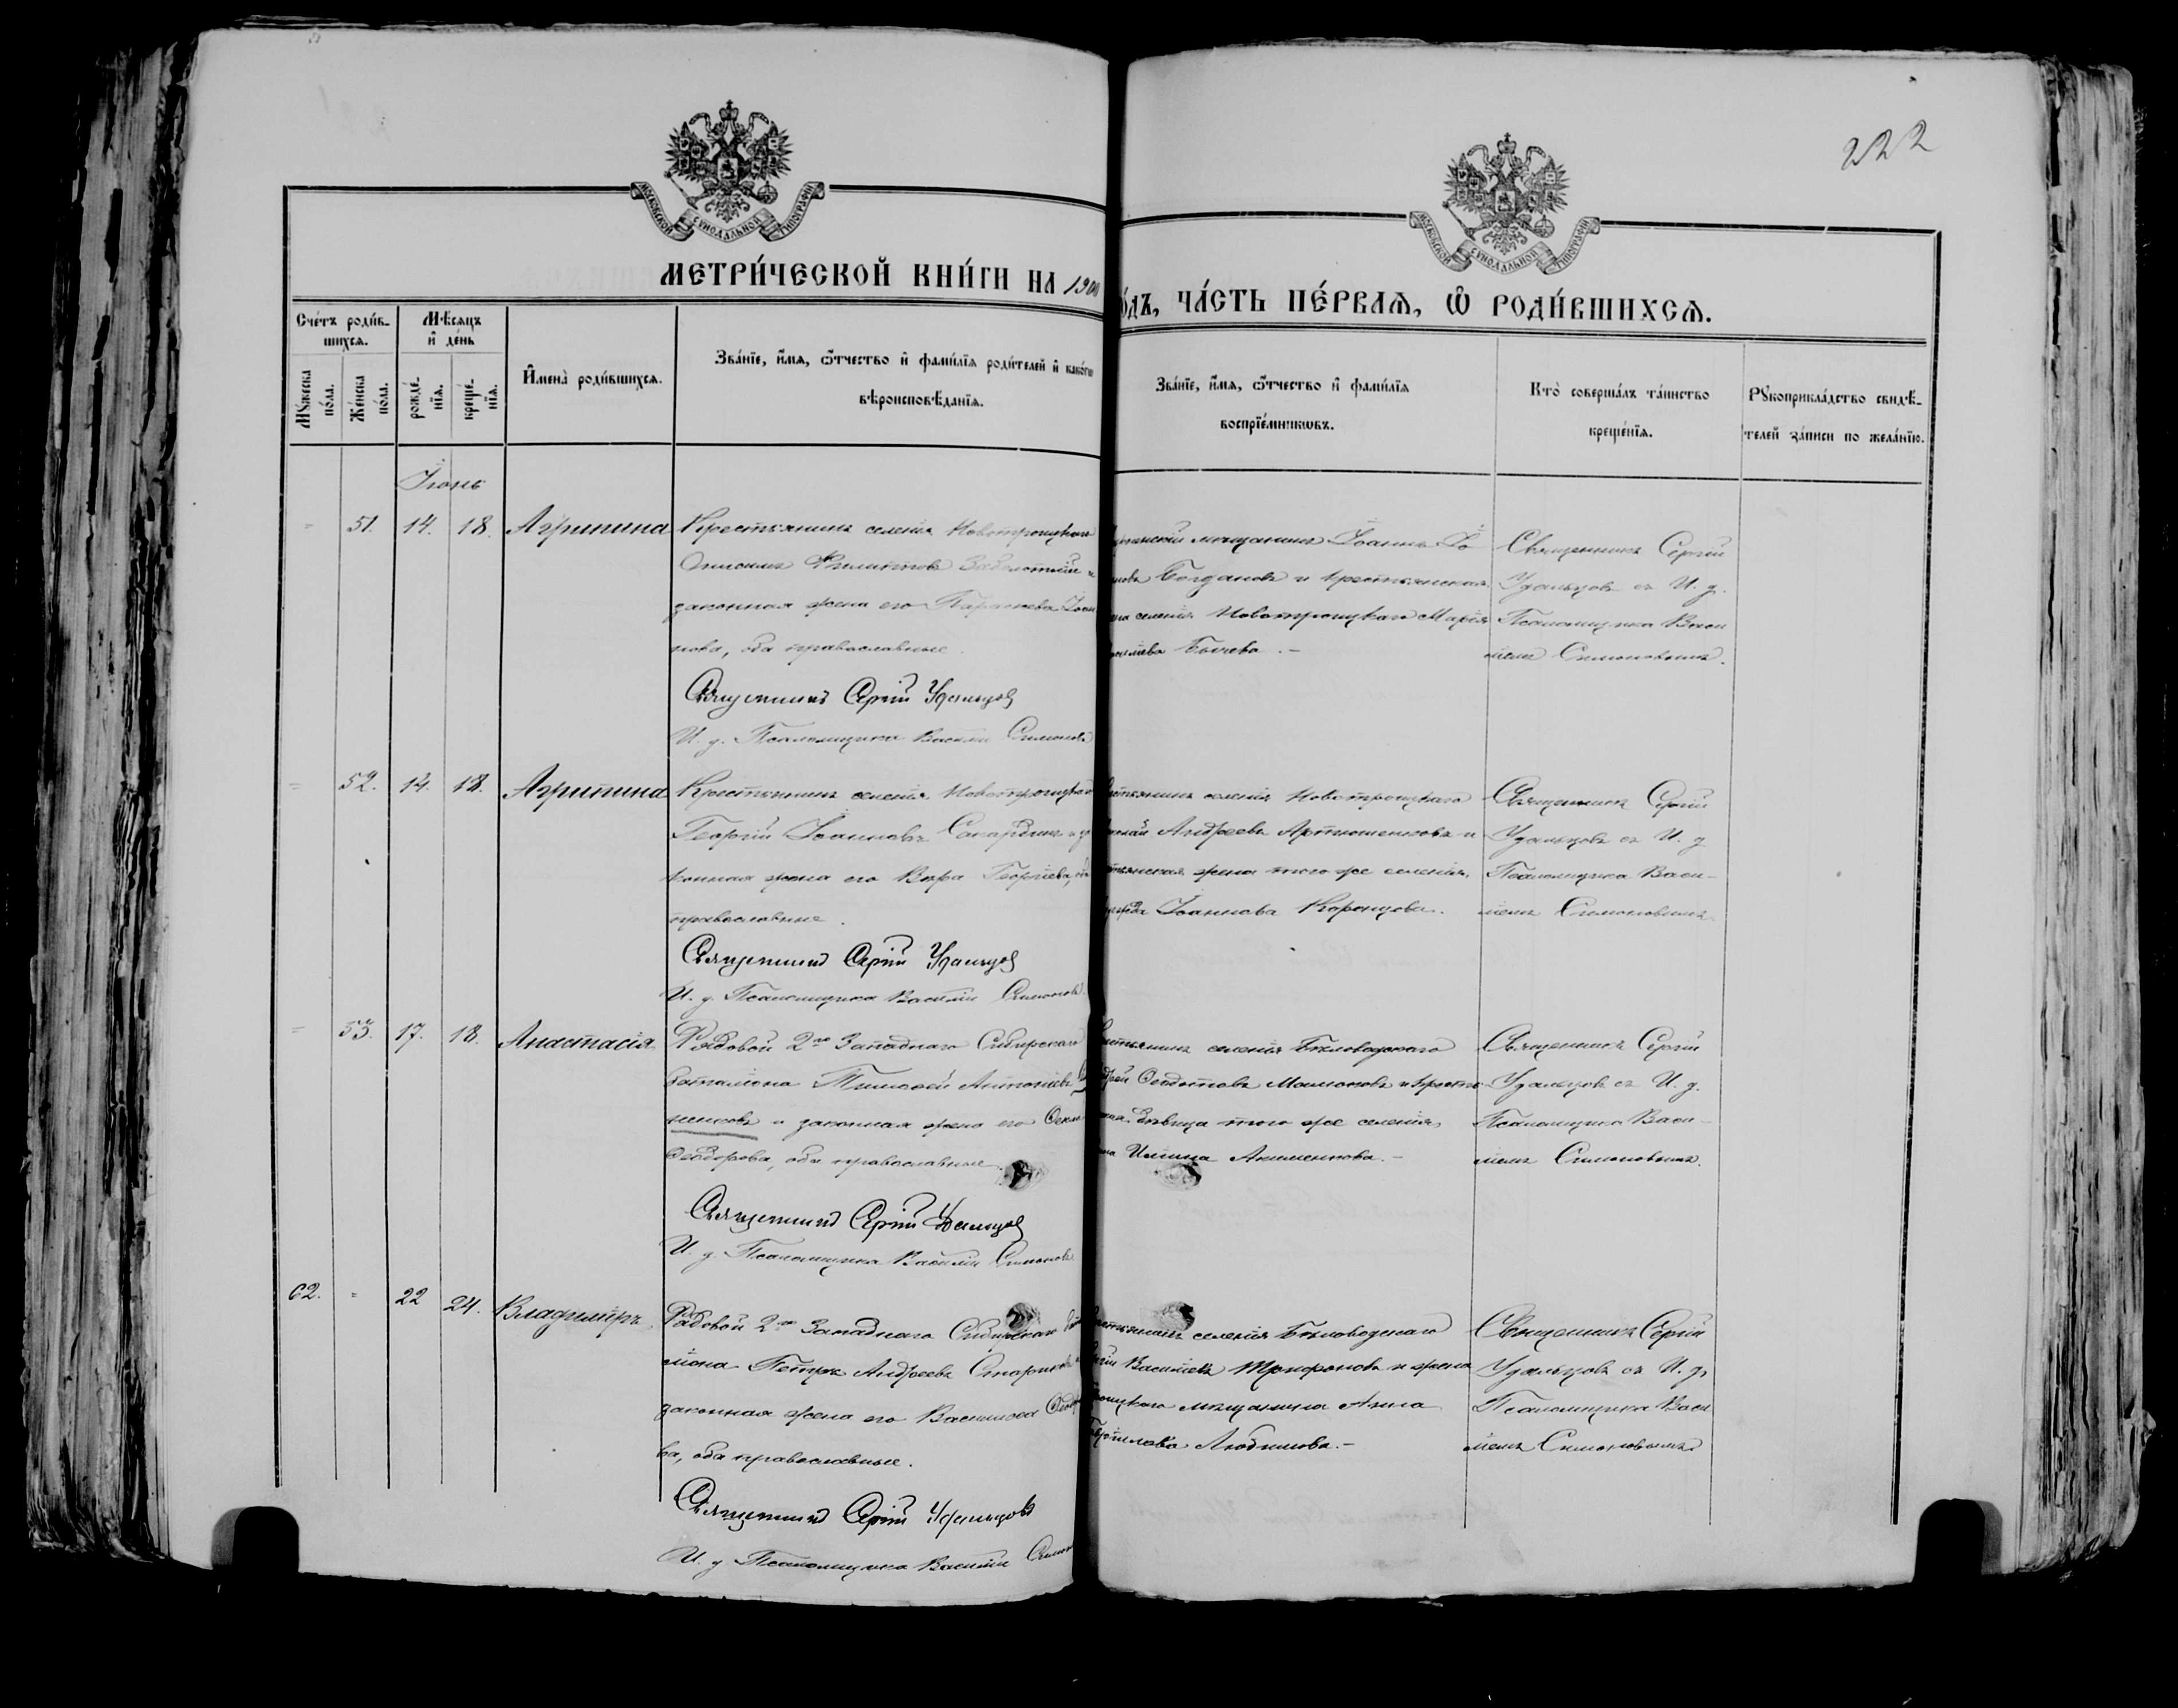 222
МОСКОВСКОЙ СУНОДАЛЬНОЙ ТИПОГРАФІИ
МОСКОВСКОЙ СУНОДАЛЬНОЙ ТИПОГРАФІИ
МЕТРИ́ЧЕСКОЙ КНИ́ГИ НА 1900
ѻ́дъ, ЧА́СТЬ ПЕ́РВАѦ, Ѽ РОДИ́ВШИХСѦ.
Сче́тъ роди́в-
шихсѧ.
Мѣ́сяцъ
и҆ де́нь
Мꙋ́жеска
по́ла.
Же́нска
по́ла.
рожде́-
нїѧ.
креще́-
нїѧ.
И҆мена̀ роди́вшихсѧ.
Зва́нїе, и҆́мѧ, ѻ҆́тчество и҆ фами́лїѧ роди́телей и҆ како́гѡ
вѣроисповѣ́данїѧ.
Зва́нїе, и҆́мѧ, ѻ҆́тчество и҆ фами́лїѧ
воспрїе́мникѡвъ.
Кто̀ соверша́лъ та́инство
креще́нїѧ.
Рꙋкоприкла́дство свидѣ́-
телей за́писи по жела́нїю.
Іюнь
51. 14. 18. Агрипина
Крестьянинъ селенія Новотроицкаго
Онисимъ Филипповъ Заболотній и
законная жена его Параскева Іоан
нова, оба православные.
Священникъ Сергій Удальцовъ
И. д. Псаломщика Василій Симоновъ
мѣщанинъ Іоаннъ Іо
новъ Богдановъ и крестьянская
жена селенія Новотроицкаго Марія
Бычева. –
Священникъ Сергій
Удальцовъ съ И. д.
Псаломщика Васи
ліемъ Симоновымъ.
52. 14. 18. Агрипина
Крестьянинъ селенія Новотроицкаго
Георгій Іоанновъ и за
конная жена его Вѣра Георгіева, оба
православные.
Священникъ Сергій Удальцовъ
И. д. Псаломщика Василій Симоновъ
стьянинъ селенія Новотроицкаго
Андреевъ Артюшенковъ и
стьянская жена того же селенія
Іоаннова
Священникъ Сергій
Удальцовъ съ И. д.
Псаломщика Васи-
ліемъ Симоновымъ.
53. 17. 18. Анастасія
Рядовой 2го Западнаго Сибирскаго
баталіона Тимофей Антоніевъ
ненковъ и законная жена его
Ѳеодорова, оба православные.
Священникъ Сергій Удальцовъ
И. д. Псаломщика Василій Симоновъ
стьянинъ селенія Бѣловодскаго
Ѳедотовъ Мамоновъ и кресть
дѣвица того же селенія
Ильина Акименкова. –
Священникъ Сергій
Удальцовъ съ И. д.
Псаломщика Васи-
ліемъ Симоновымъ.
62. 22 24. Владиміръ
Рядовой 2го Западнаго Сибирскаго
ліона Петръ Андреевъ
законная жена его Василиса Ѳеодоро
ва, оба православные.
Священникъ Сергій Удальцовъ
И. д. Псаломщика Василій Симон
стьянинъ селенія Бѣловодскаго
Василіевъ Трифоновъ и жена
мѣщанина Анна
Любимова. –
Священникъ Сергій
Удальцовъ съ И. д.
Псаломщика Васи
ліемъ Симоновымъ.